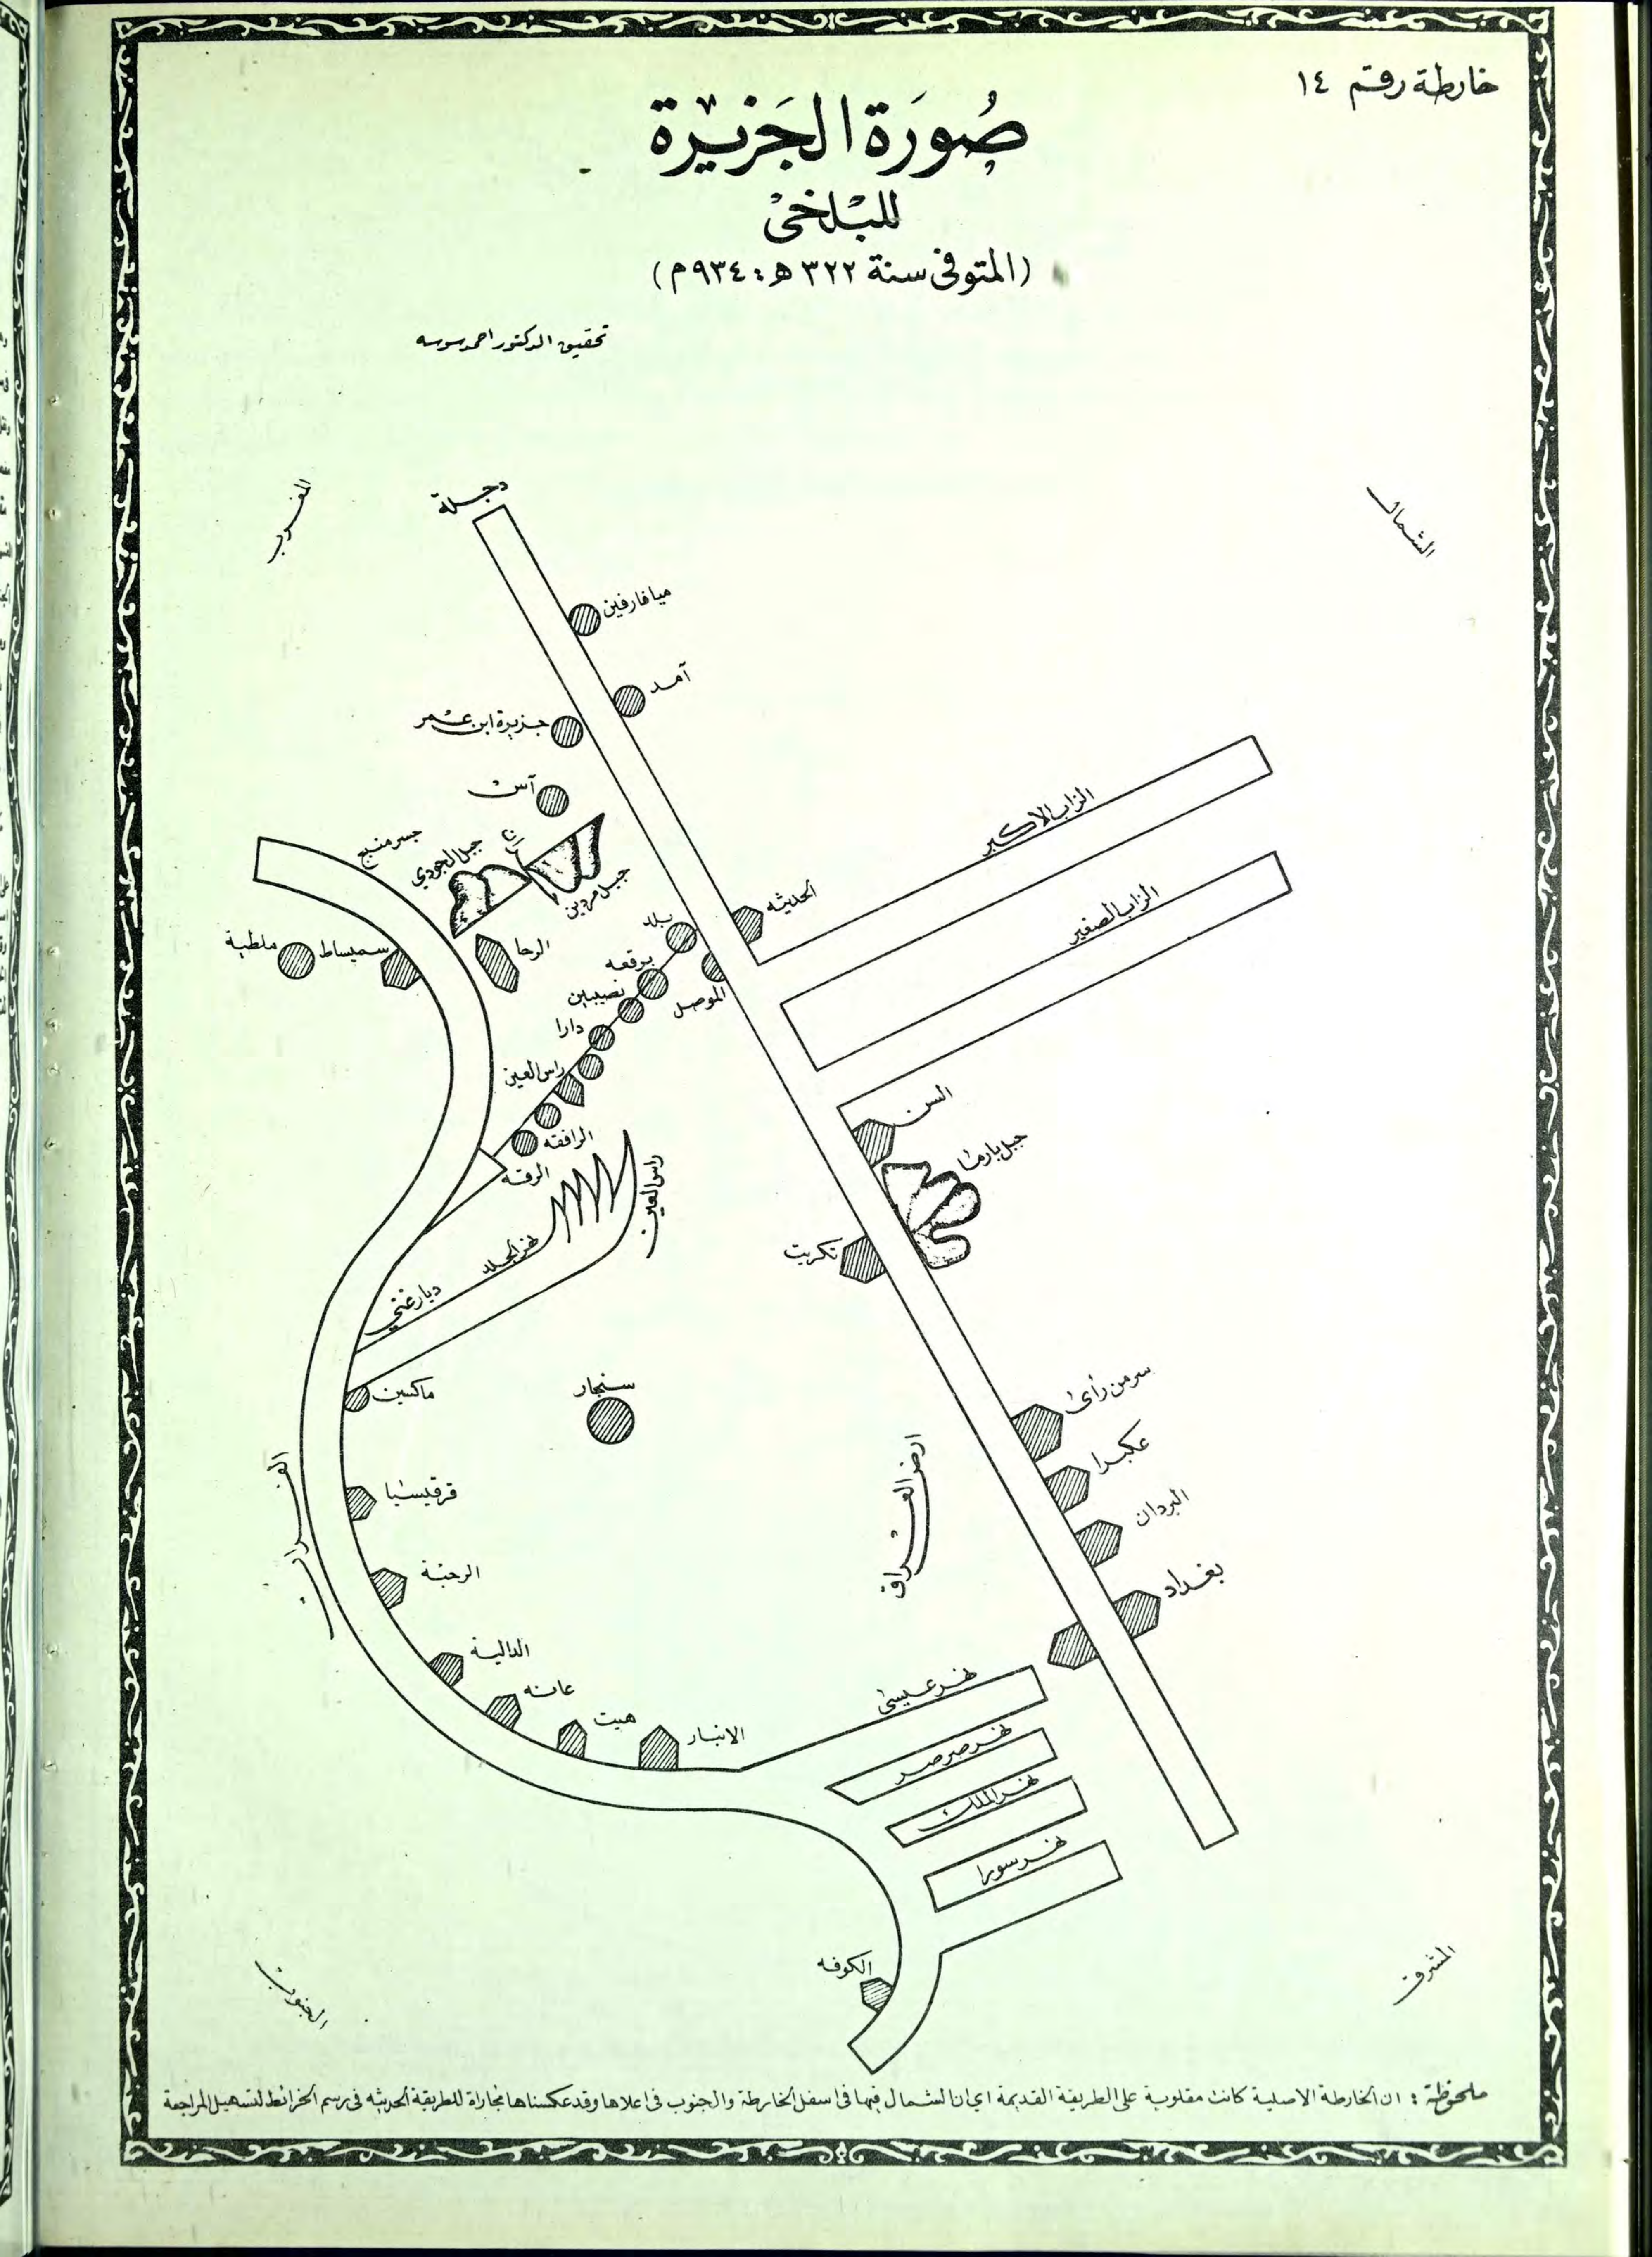 خارطة رقم ١٤
صُورَة الجَزيرة
للبلخي
(المتوفى سنة ٣٢٢ هـ: ٩٣٤ م)
تحقيق الدكتور احمد سوسه
المغرب
الشمال
دجلة
ميافارفين
آمد
جزيرة ابن عمر
آس
جسر منبج
جبل الجودي
جبل مردين
الزاب الاكبر
الزاب الصغير
الحديثه
بلد
ملطية
سميساط
الرحا
برقعه
نصيبين
الموصل
دارا
راس العين
الرافقه
الرقه
راس العين
السن
جبل بارما
تكريت
ديار غني
ماكسين
سنجار
سر من رأى
عكبرا
البردان
بغداد
ارض العراق
الفرات
قرقيسيا
الرحبة
الدالية
عانه
هيت
الانبار
نهر عيسى
نهر صرصر
نهر الملك
نهر سورا
الكوفه
الجنوب
المشرق
ملحوظة : ان الخارطة الاصلية كانت مقلوبة على الطريقة القديمة اي ان الشمال فيها في اسفل الخارطة والجنوب في اعلاها وقد عكسناها مجاراة للطريقة الحديثه في رسم الخرائط لتسهيل المراجعة